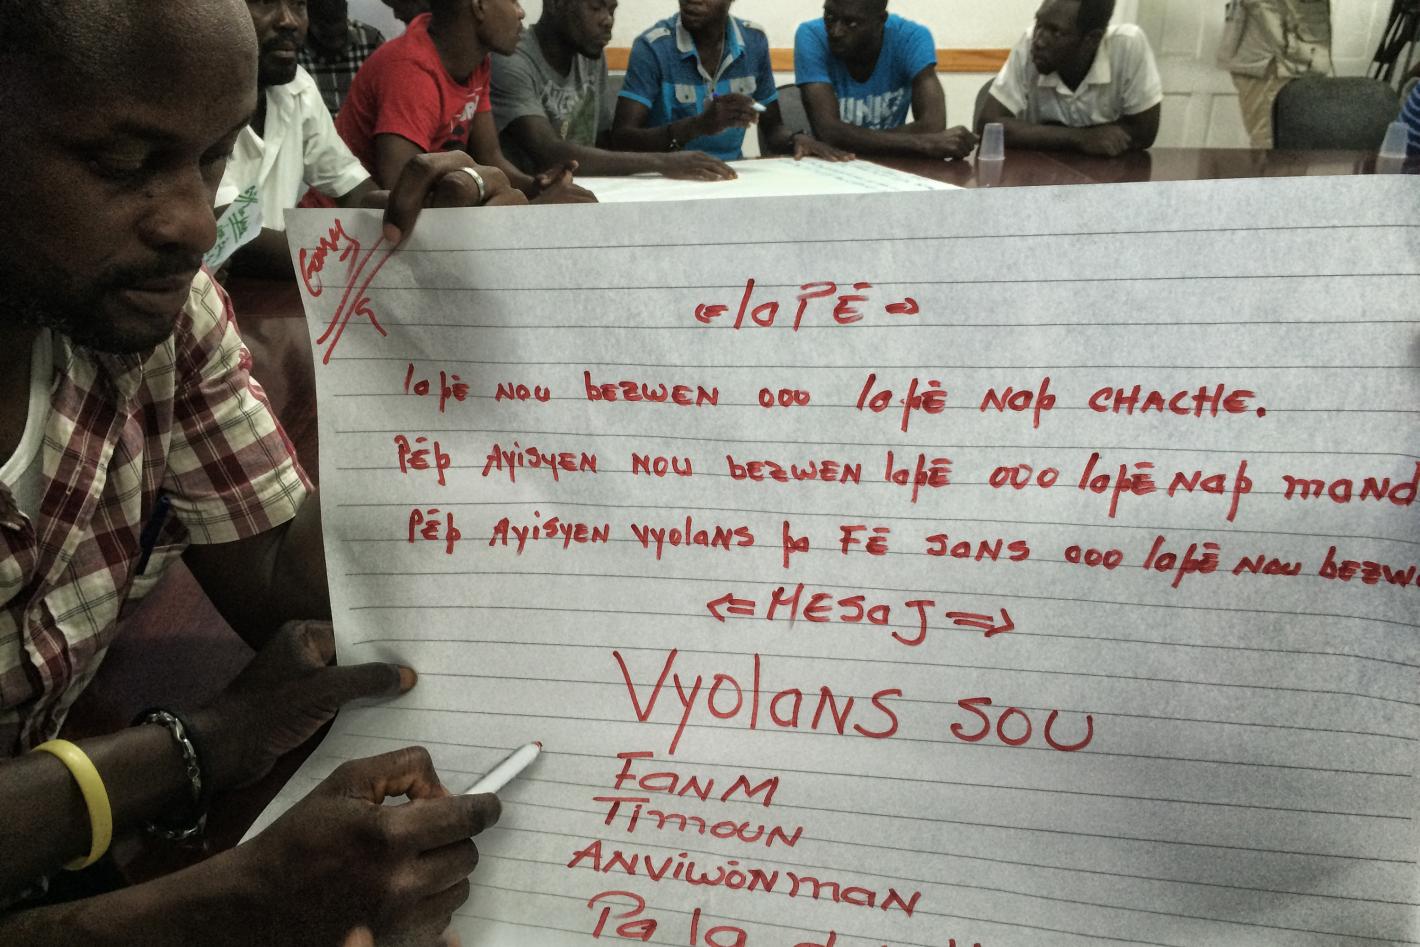 ← laPÈ →
lapè Nou bEZWEN ooo lapè Nap CHACHE.
Pèp AyisyEN NOU bEZWEN lapè ooo lapè Nap maNd
Pèp AyisyEN vyolaNS pa FÈ SaNS ooo lapè Nou bEZW
⇐ MESaJ ⇒
VyolaNS SOU
FaNM
TimouN
ANViWÒNmaN
Pa la